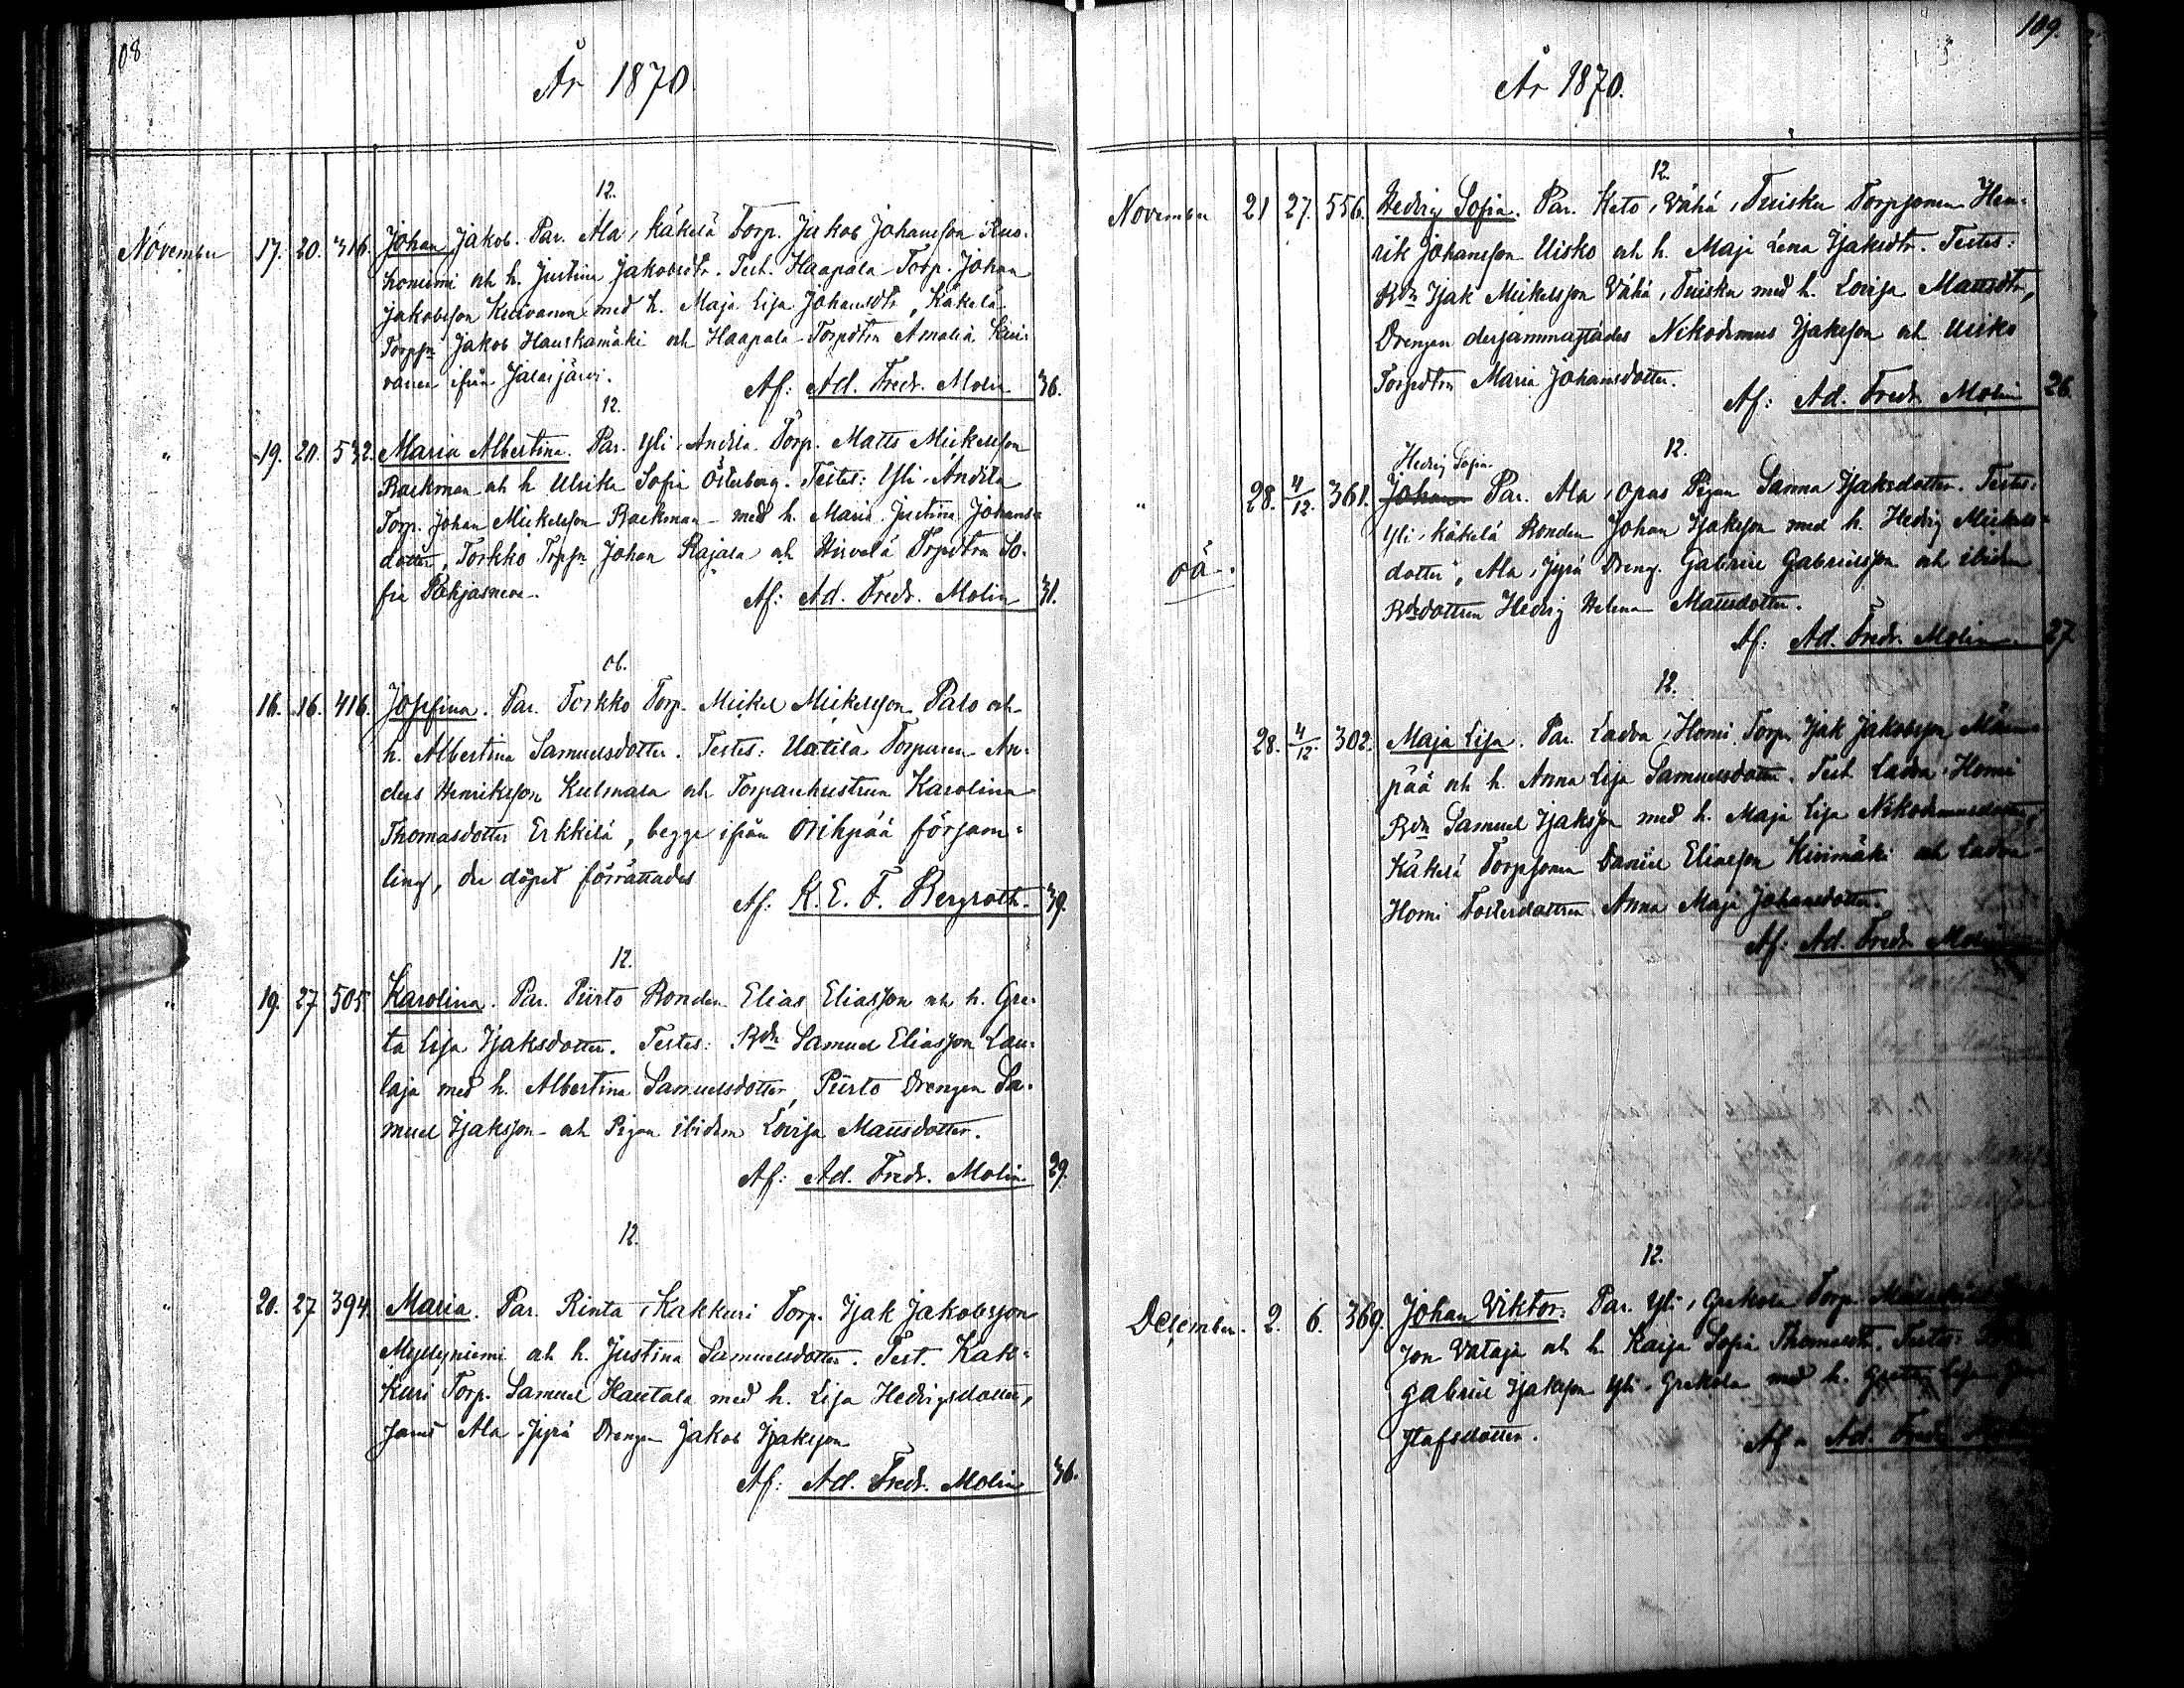 108
År 1870
12.
November 17. 20. 316. Johan Jakob. Par. Ala, Käkelä Torp. Jakob Johansson Ruo-
koniemi och h. Justina Jakobsdtr. Test. Haapala Torp. Johan
Jakobsson Kuivanen med h. Maja Lisa Johansdtr, Käkelä
Torpsn Jakob Hauskamäki och Haapala Torpdtrn Amalia Kui-
vanen ifrån Jalasjärvi.
Af: Ad. Fredr. Molin 36.
12.
" 19. 20. 532. Maria Albertina. Par. Yli, Andila Torp. Matts Mickelsson
Backman och h Ulrika Sofia Österberg. Testes: Yli-Andila
Torp. Johan Mickelsson Backman med h. Maria Justina Johans-
dotter, Torkko Torpsn Johan Rajala och Hirvelä Trpdtrn So-
fia Pohjasneva.
Af: Ad. Fredr. Molin 31.
ob.
" 16. 16. 416. Josefina. Par. Torkko Torp. Mickel Mickelsson Palo och
h. Albertina Samuelsdotter. Testes: Uotila Torparen An-
ders Henriksson Kulmala och Torparehustrun Karolina
Thomasdotter Erkkilä, begge ifrån Orihpää försam-
ling, der döpet förrättades
Af: K. E. F. Bergroth. 39.
12.
" 19. 27 505 Karolina. Par. Piirto Bonden Elias Eliasson och h. Gre-
ta Lisa Isaksdotter. Testes: Bdn Samuel Eliasson Lau-
laja med h. Albertina Samuelsdotter, Piirto Drengen Sa-
muel Isaksson och Pigan ibidem Lovisa Mattsdotter.
Af: Ad. Fredr. Molin 29.
12.
" 20. 27 394. Maria. Par. Rinta, Kakkuri Torp. Isak Jakobsson
Myllyniemi och h. Justina Samuelsdotter. Test. Kak-
kuri Torp. Samuel Hautala med h. Lisa Hedvigsdotter,
samt Ala-Jyrä Drengen Jakob Isaksson
Af: Ad. Fredr. Molin 36.
109.
År 1870.
12.
November 21 27. 556. Hedvig Sofia. Par. Keto, Vähä, Tuisku Torpsonen Hen-
rik Johansson Uisko och h. Maja Lena Isaksdtr. Testes:
Bdn Isak Mickelsson Vähä, Tuisku med h. Lovisa Mattsdtr,
Drengen dersammastädes Nikodemus Isaksson och Uisko
Torpdtrn Maria Johansdotter.
Af: Ad. Fredr. Molin 26.
12.
Hedvig Sofia.
" 28. 4/12. 361. Johan Par. Ala, Opas Pigan Sanna Isaksdotter. Testes:
Yli, Käkelä Bonden Johan Isaksson med h. Hedvig Mickels-
oä. dotter, Ala, Jyrä Dreng. Gabriel Gabrielsson och ibidem
Bdedottren Hedvig Helena Mattsdotter.
Af: Ad. Fredr. Molin 27
12.
28. 4/12. 302. Maja Lisa. Par. Ladva, Homi Torp. Isak Jakobsson
pää och h. Anna Lisa Samuelsdotter. Test Ladva, Homi
Bdn Samuel Isaksson med h. Maja Lisa Nikodemusdotter,
Käkelä Torpsonen Daniel Eliasson Kivimäki och Ladva-
Homi Fosterdottren Anna Maja Johansdotter.
Af: Ad. Fredr. Molin
12.
December. 2. 6. 369. Johan Viktor. Par. Yli, Grekola Torp.
son Vataja och h. Kaisa Sofia Thomasdtr. Testes:
Gabriel Isaksson Yli, Grekola med h. Greta Lisa
stafsdotter.
Af: Ad. Fredr.